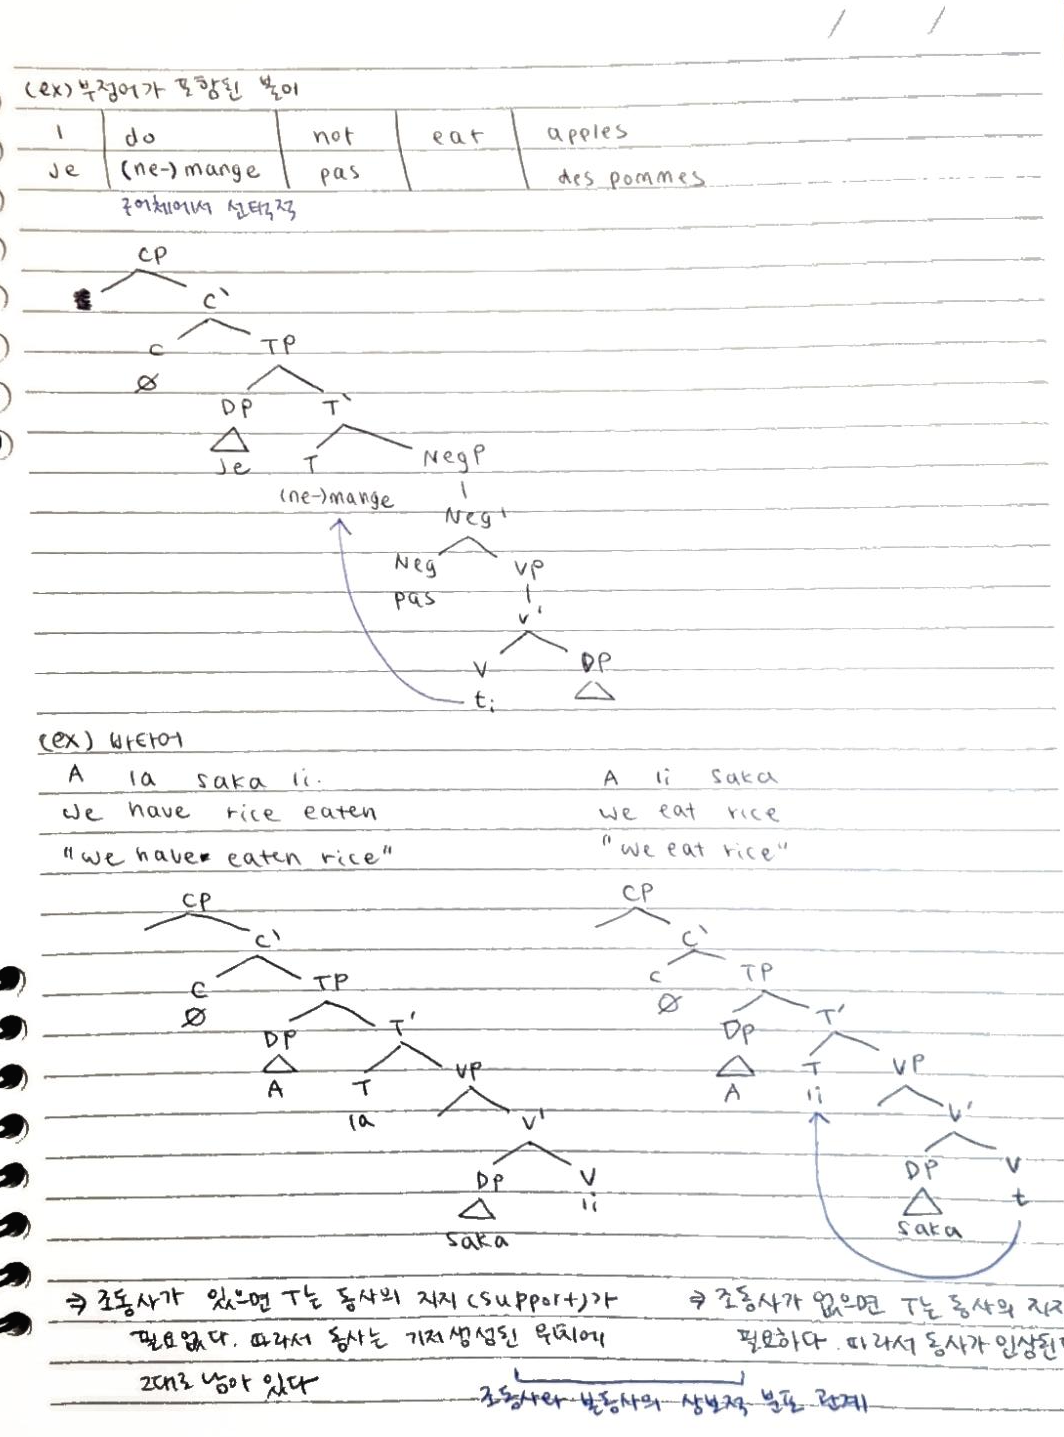 (ex) 부정어가 포함된 불어
I do not eat apples
Je (ne-) mange pas des pommes
구어체에서 선택적
CP
C`
C TP
∅ DP T`
Je T NegP
(ne-)mange Neg'
Neg VP
pas V'
V DP
ti
(ex) 바타어
A la saka li. A li saka
we have rice eaten we eat rice
"we have eaten rice" "we eat rice"
CP CP
C` C`
C TP C TP
∅ ∅
DP T' DP T'
A T VP A T VP
la V' li V'
DP V DP V
saka li saka t
⇒ 조동사가 있으면 T는 동사의 지지(support)가 ⇒ 조동사가 없으면 T는 동사의 지지
필요없다. 따라서 동사는 기저생성된 위치에 필요하다. 따라서 동사가 인상된
그대로 남아 있다
조동사와 본동사의 상보적 분포 관계